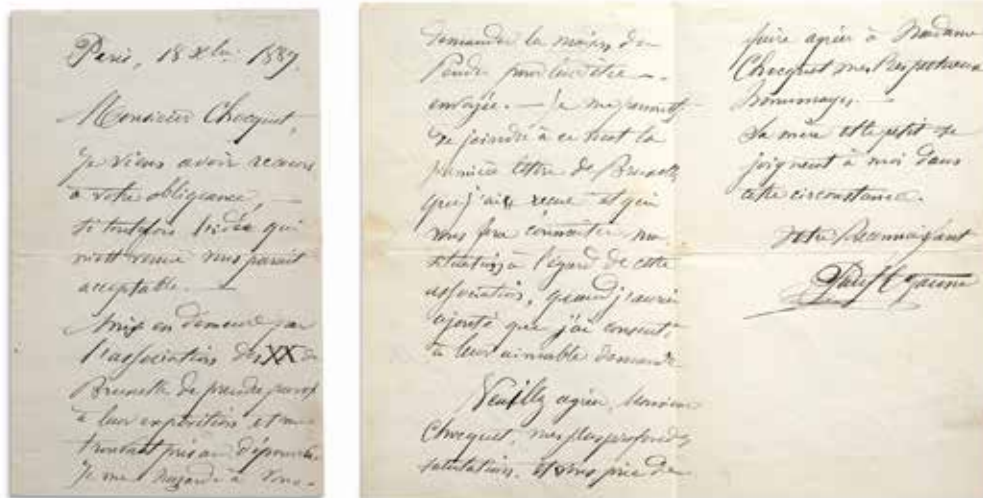 Paris, 18 Xbre 1889.
Monsieur Chocquet,
Je viens avoir recours
à votre obligeance, —
si toutefois l'idée qui
m'est venue vous parait
acceptable. —
Mis en demeure par
l'association des XX de
Bruxelles de prendre part
à leur exposition, et me
trouvant pris au dépourvu
je me hasarde à vous
demander la maison du
Pendu pour leur être —
envoyée. — Je me permets
de joindre à ce mot la
première lettre de Bruxelles
que j'ai reçue et qui
vous fera connaitre ma
situation à l'égard de cette
association, quand j'aurai
ajouté que j'ai consenti
à leur aimable demande
Veuillez agréer, Monsieur
Chocquet, mes plus profondes
salutations, et vous prie de
faire agréer à Madame
Chocquet mes Respectueux
hommages. —
La mère et le petit se
joignent à moi dans
cette circonstance.
Votre Reconnaissant
Paul Cezanne